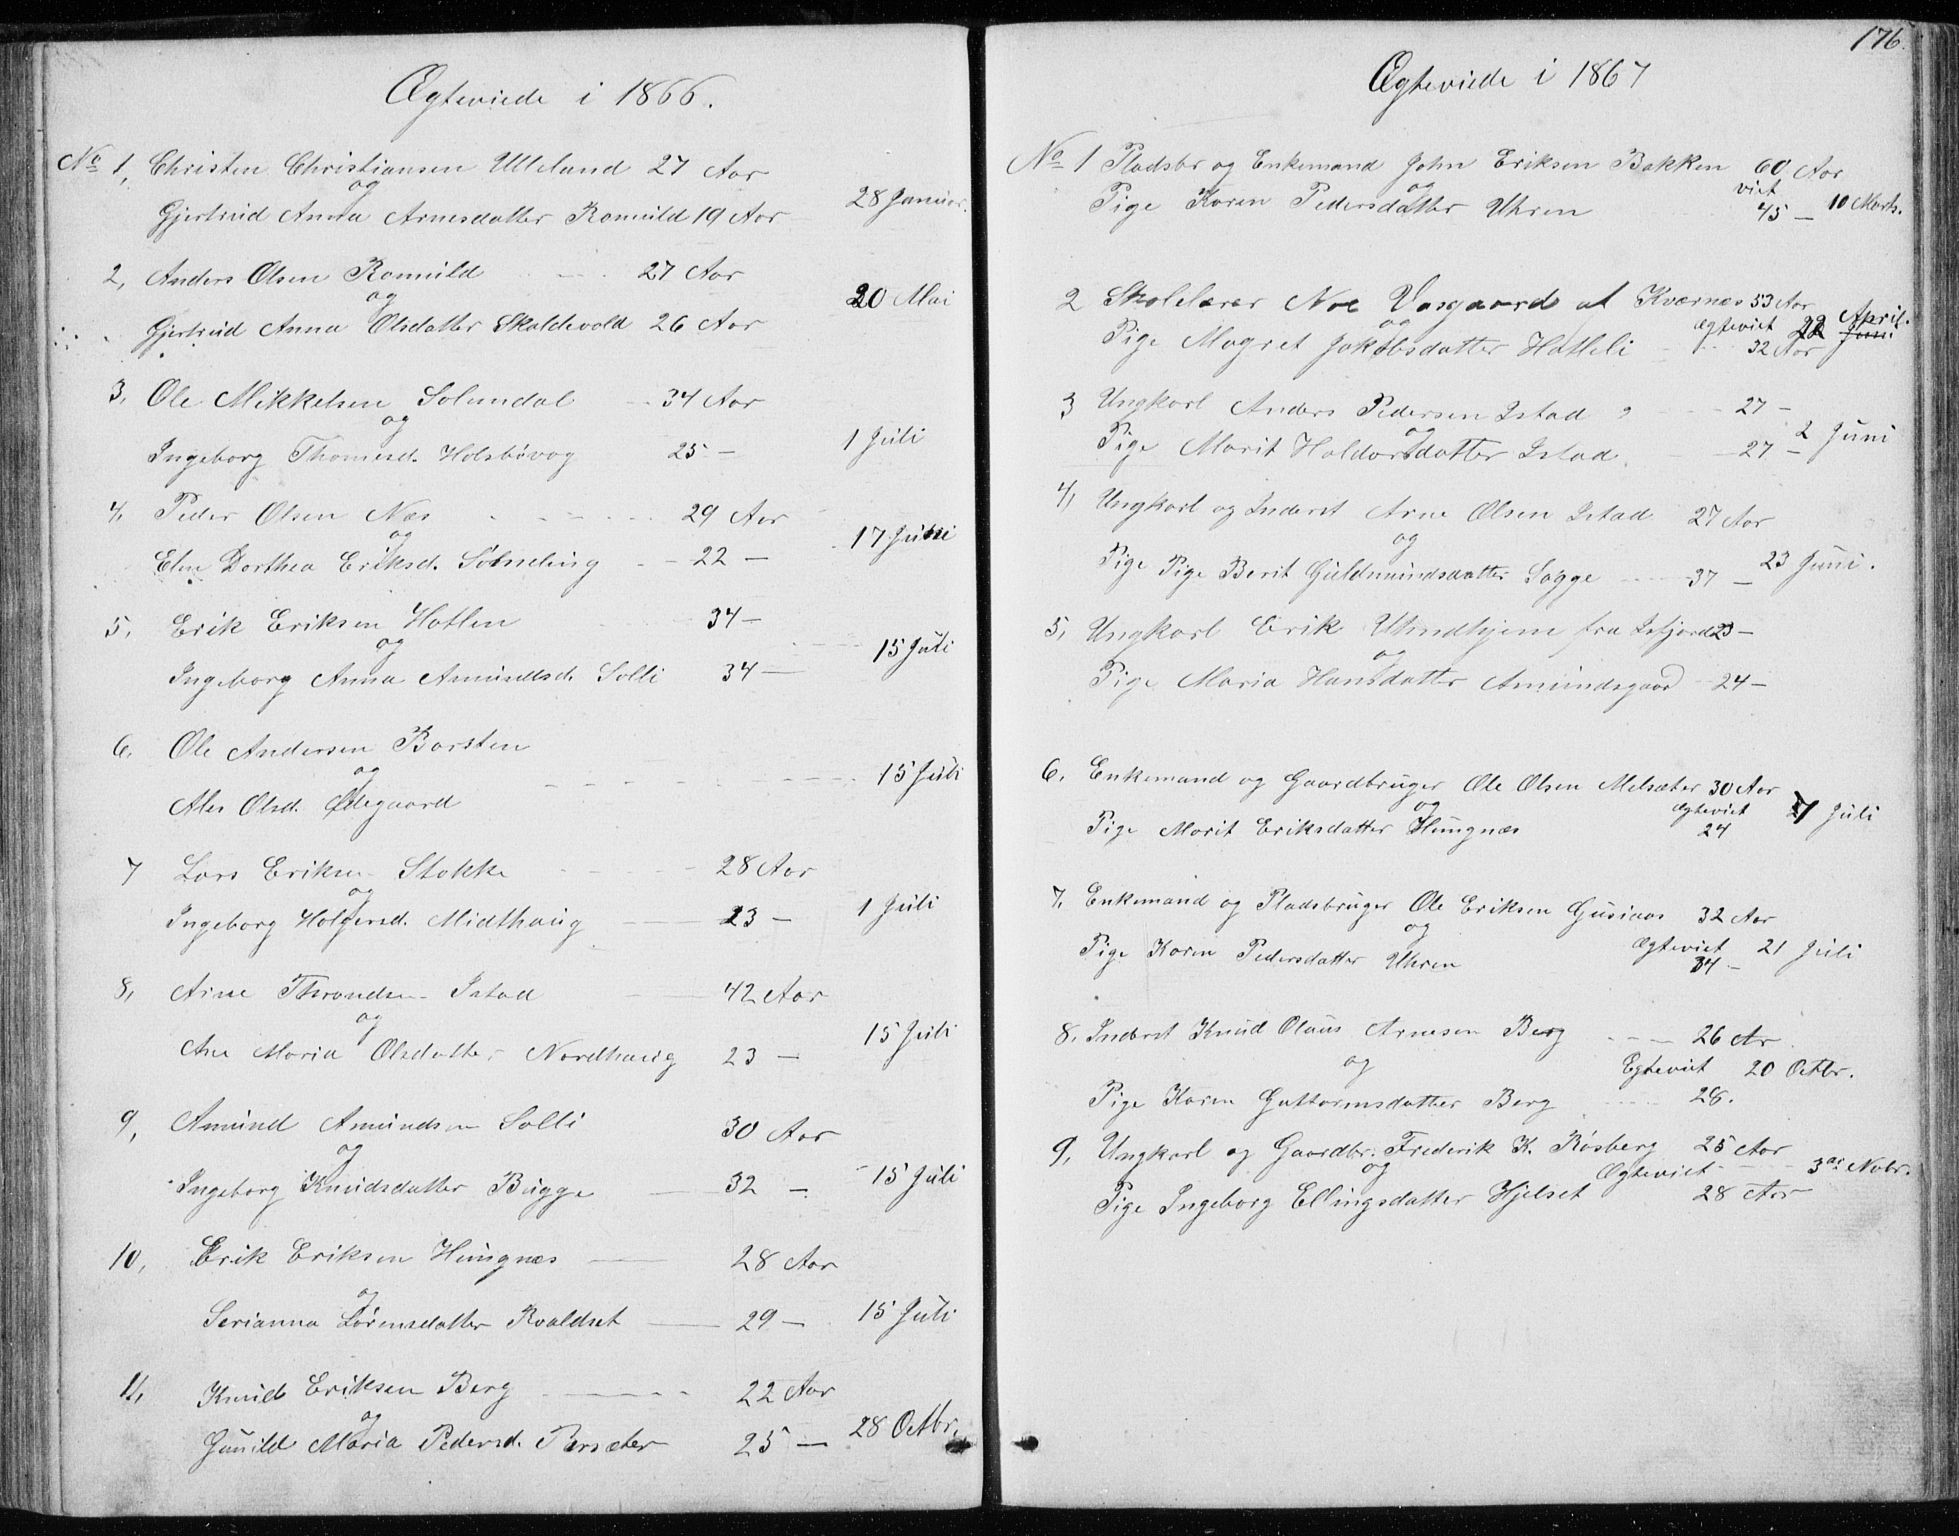 Ægteviede i 1866.
No 1, Christen Christiansen Ulleland 27 Aar
og
28 Januar.
Gjertrud Anna Arnesdatter Romuld 19 Aar
2, Anders Olsen Romuld 27 Aar
og
20 Mai
Gjertrud Anna Olsdatter Skaldevold 26 Aar
3, Ole Mikkelsen Solemdal 34 Aar
og
1 Juli
Ingeborg Thomesd. 25 —
4, Peder Olsen Næs 29 Aar
og
17 Juni
Elen Dorthea Eriksd. 22 —
5, Erik Eriksen Hotlen 34 —
og
15 Juli
Ingeborg Anna Amundsd. Solli 34 —
6, Ole Andersen Barsten
og
15 Juli
Ales Olsd. Ødegaard
7 Lars Eriksen Stokke 28 Aar
og
1 Juli
Ingeborg Holgersd. Midthaug 23 —
8, Arne Throndsen Istad 42 Aar
og
15 Juli
Ane Maria Olsdatter Nordhaug 23 —
9, Amund Amundsen Solli 30 Aar
og
15 Juli
Ingeborg Knudsdatter Bugge 32 —
10, Erik Eriksen Hungnæs 28 Aar
og
15 Juli
Serianna Lørensdatter Roaldset 29 —
11, Knud Eriksen Berg 22 Aar
og
28 Octbr.
Gunild Maria Pedersd. 25 —
176.
Ægteviede i 1867
No 1 Pladsbr og Enkemand John Eriksen Bakken 60 Aar
og viet 10 Marts.
Pige Karen Pedersdatter Uhren 45 —
2 Skolelærer Noe Vasgaard af Kværnæs 53 Aar
og Ægteviet 22 April. Juni
Pige Magret Jakobsdatter Hatleli 32 Aar
3 Ungkarl Anders Pedersen Istad 27 —
og
2 Juni
Pige Marit Haldorsdatter Istad 27 —
4, Ungkarl og Inderst Arne Olsen Istad 27 Aar
og
23 Juni.
Pige Pige Berit Guldmundsdatter Søgge 37 —
5, Ungkarl Erik Unhjem fra Isfjord 23 —
og
Pige Maria Hansdatter Amundsgaard 24 —
6, Enkemand og Gaardbruger Ole Olsen Melsæter 30 Aar
og Ægteviet 7 Juli
Pige Marit Eriksdatter Hungnæs 24
7, Enkemand og Pladsbruger Ole Eriksen Gusiaas 32 Aar
og Ægteviet 21 Juli
Pige Karen Pedersdatter Uhren 34 —
8, Inderst Knud Olaus Arnesen Berg 26 Ar
og Egteviet 20 Octbr.
Pige Karen Guttormsdatter Berg 28.
9, Ungkarl og Gaardbr. Frederik K. Røsberg 25 Aar
og Ægteviet 3die Novbr.
Pige Ingeborg Ellingsdatter Hjelset 28 Aar